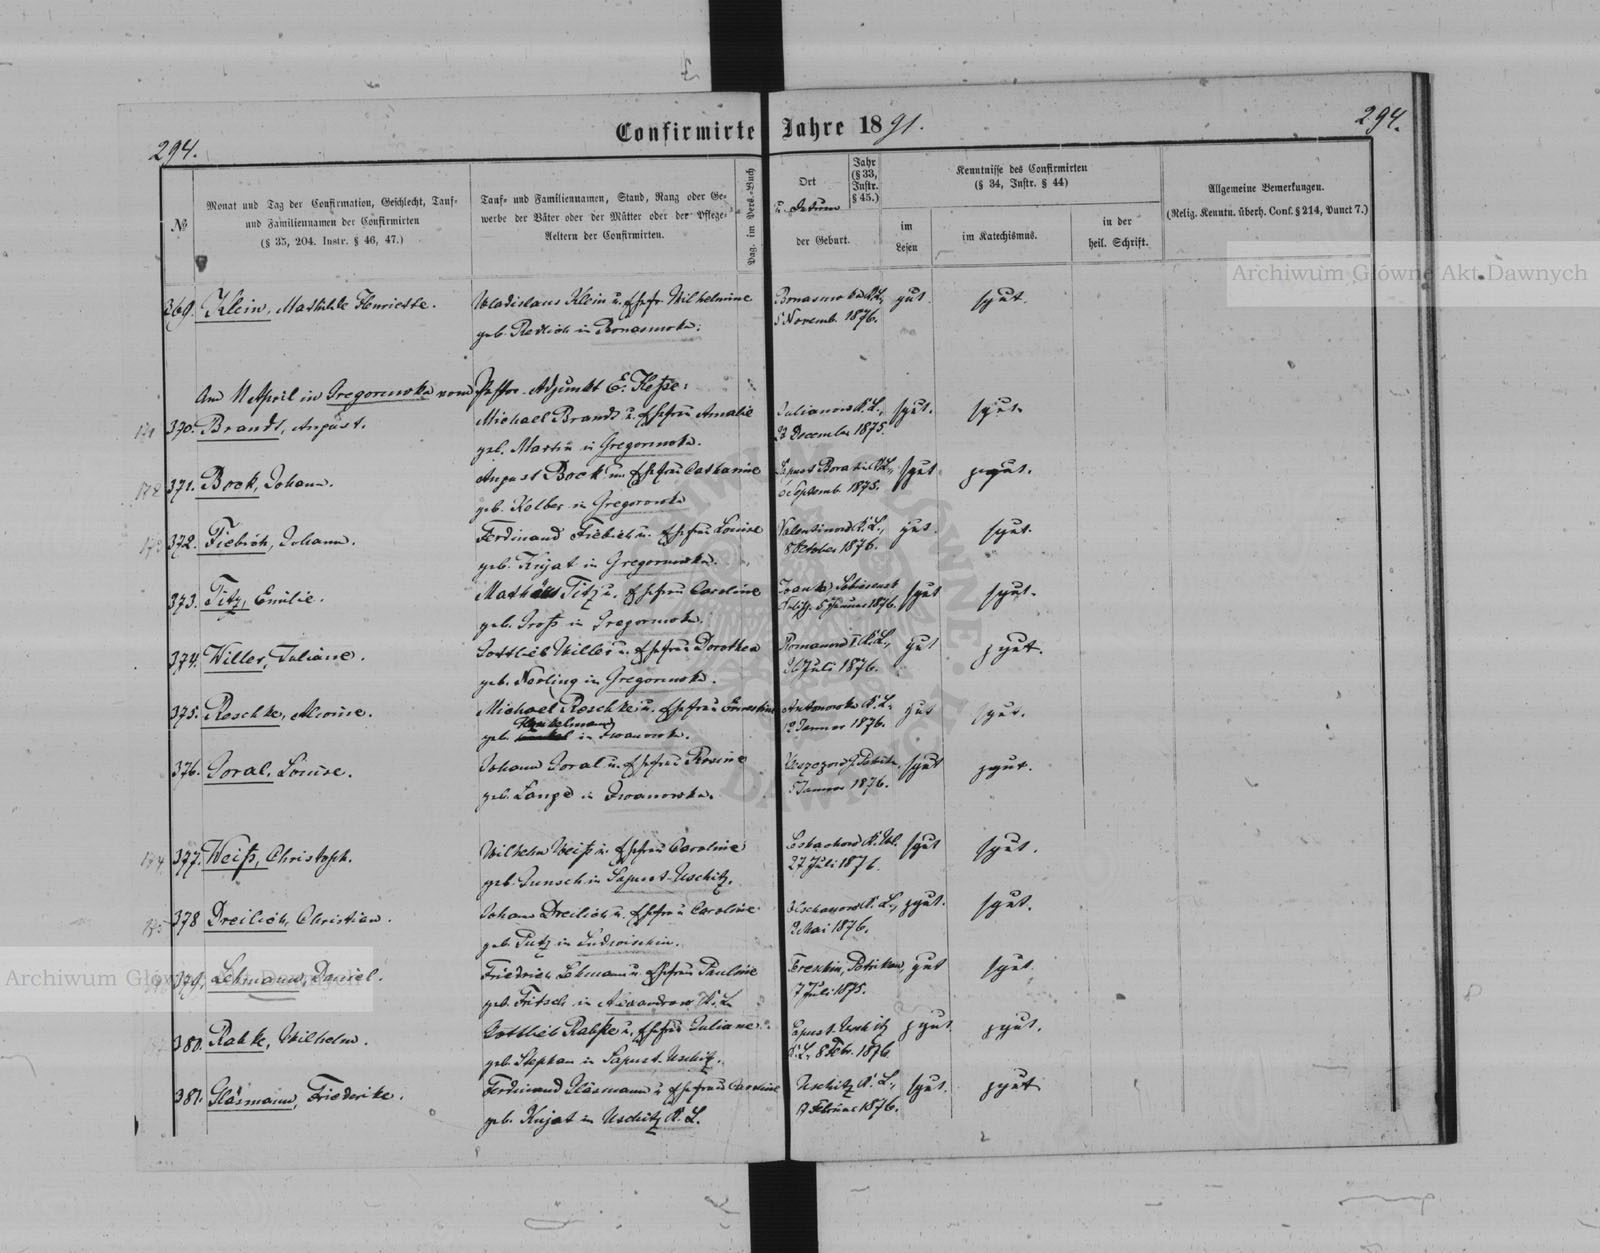 294.
Confirmirte Jahre 1891.
294.
№
Monat und Tag der Confirmation, Geschlecht, Tauf-
und Familiennamen der Confirmirten
(§ 35, 204. Instr. § 46, 47.)
Tauf- und Familiennamen, Stand, Rang oder Ge-
werbe der Väter oder der Mütter oder der Pflege-
Aeltern der Confirmirten.
Pag. im Pers.-Buch
Ort
u. Datum
der Geburt.
Jahr
(§ 33,
Instr.
§ 45.)
Kenntnisse des Confirmirten
(§ 34, Instr. § 44)
im
Lesen
im Katechismus.
in der
heil. Schrift.
Allgemeine Bemerkungen.
(Relig. Kenntn. überh. Conf. § 214, Punct 7.)
369. Klein, Mathilde Henriette. Wladislaus Klein u. Ehefr. Wilhelmine gut. gut.
geb. Redlich in 5 Novemb. 1876.
Am 11 April in Gregorowka vom Pastor-Adjunkt E.
370. Brandt, August. Michael Brandt u. Ehefrau Amalie Julianow K. L., gut. gut.
geb. Martin in Gregorowka. December 1875.
371. Bock, Johann. August Bock u. Ehefrau Catharine gut gut.
geb. Kelber in Gregorowka 6 Septemb. 1875.
372. Fiebich, Johann. Ferdinand Fiebich u. Ehefrau Louise Valentinow K. L., gut. gut.
geb. Knjat in Gregorowka. 8 October 1876.
373. Titz, Emilie. Mathäus Titz u. Ehefrau Caroline gut gut.
geb. Groß in Gregorowka. 5 Januar 1876.
374. Willer, Juliane. Gottlieb Willer u. Ehefrau Dorothea Romanow K. L., gut gut.
geb. Nerling in Gregorowka. 26 Juli 1876.
375. Raschke, Alwine. Michael Raschke u. Ehefrau Ernestine Antonowka K. L. gut gut.
geb. Henkelmann in Iwanowka. 12 Januar 1876.
376. Goral, Louise. Johann Goral u. Ehefrau Rosine gut gut.
geb. Lange in Iwanowka. Januar 1876.
174 377. Weiß, Christoph. Wilhelm Weiß u. Ehefrau Caroline gut gut.
geb. Junsch in Sapust-Uschitz. 27 Juli 1876.
175 378 Dreilich, Christian. Johann Dreilich u. Ehefrau Caroline K. L., gut. gut.
geb. Putz in 2 Mai 1876.
379. Lehmann, Daniel. Friedrich Lehmann u. Ehefrau Pauline gut gut
geb. Fritsch in Alexandrow K. L. 7 Juli 1875.
380. Rabke, Wilhelm. Gottlieb Rabke u. Ehefrau Juliane Sapust-Uschitz gut gut.
geb. Stephan in Sapust-Uschitz. K. L. 8 Febr. 1876.
381. Gläsmann, Friederike. Ferdinand Gläsmann u. Ehefrau Caroline Uschitz K. L., gut. gut
geb. Knjat in Uschitz K. L. Februar 1876.
Archiwum Główne Akt Dawnych
Archiwum Główne Akt Dawnych